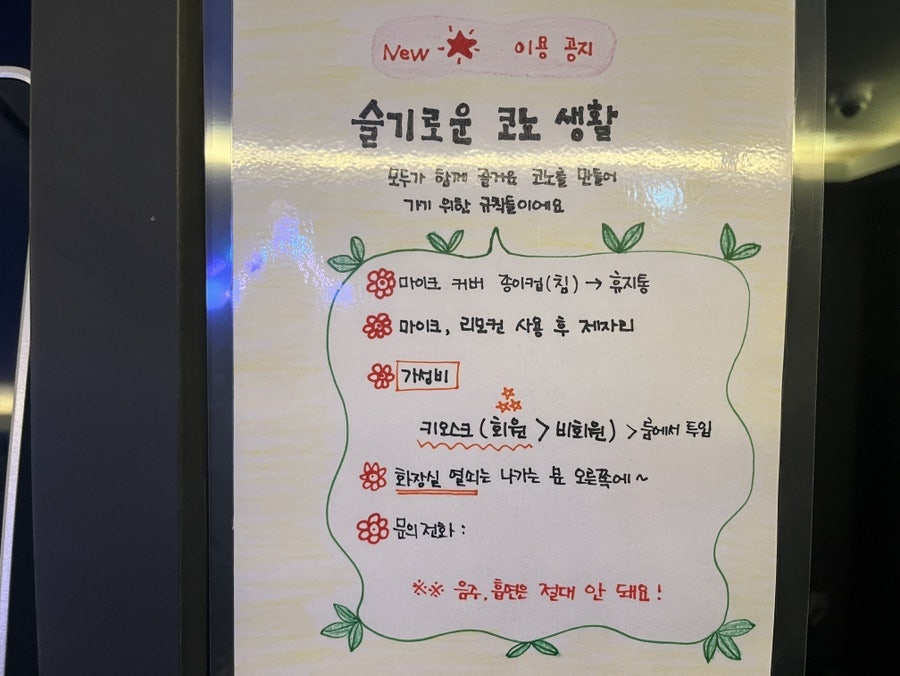 New ★ 이용 공지
슬기로운 코노 생활
모두가 함께 즐거운 코노를 만들어
가기 위한 규칙들이에요
마이크 커버 종이컵(침) → 휴지통
마이크, 리모컨 사용 후 제자리
가성비
키오스크 (회원 > 비회원) > 룸에서 투입
화장실 열쇠는 나가는 문 오른쪽에~
문의전화 :
※※ 음주, 흡연은 절대 안 돼요!